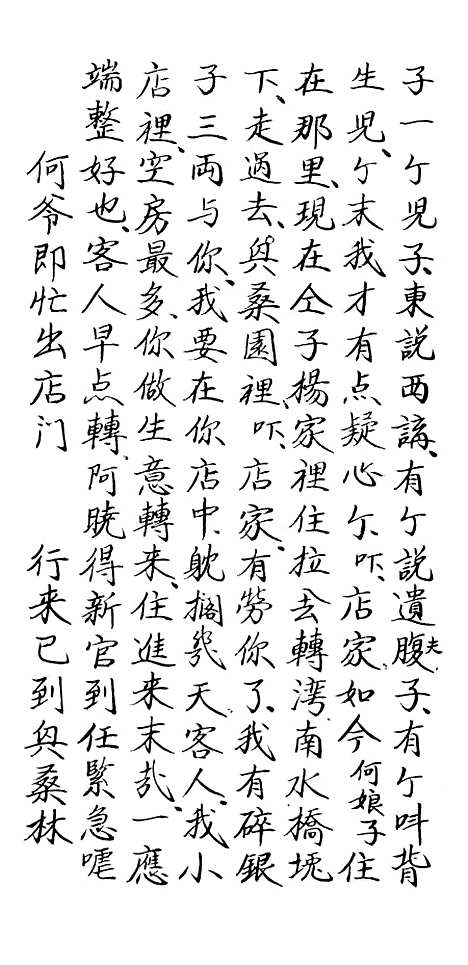 子一亇児子、東説西講、有亇説遺腹夫子、有亇呌背
生児、亇末我才有点疑心亇、吓、店家、如今何娘子住
在那里、現在仝子楊家裡住拉去轉湾、南水橋堍
下、走过去、與桑園裡、吓、店家、有勞你了、我有碎銀
子三両与你、我要在你店中、躭擱幾天、客人、我小
店裡、空房最多、你做生意轉来、住進来末哉、一應
端整好也、客人早点轉、阿曉得新官到任緊急嚜
何爷即忙出店门　行来已到與桑林